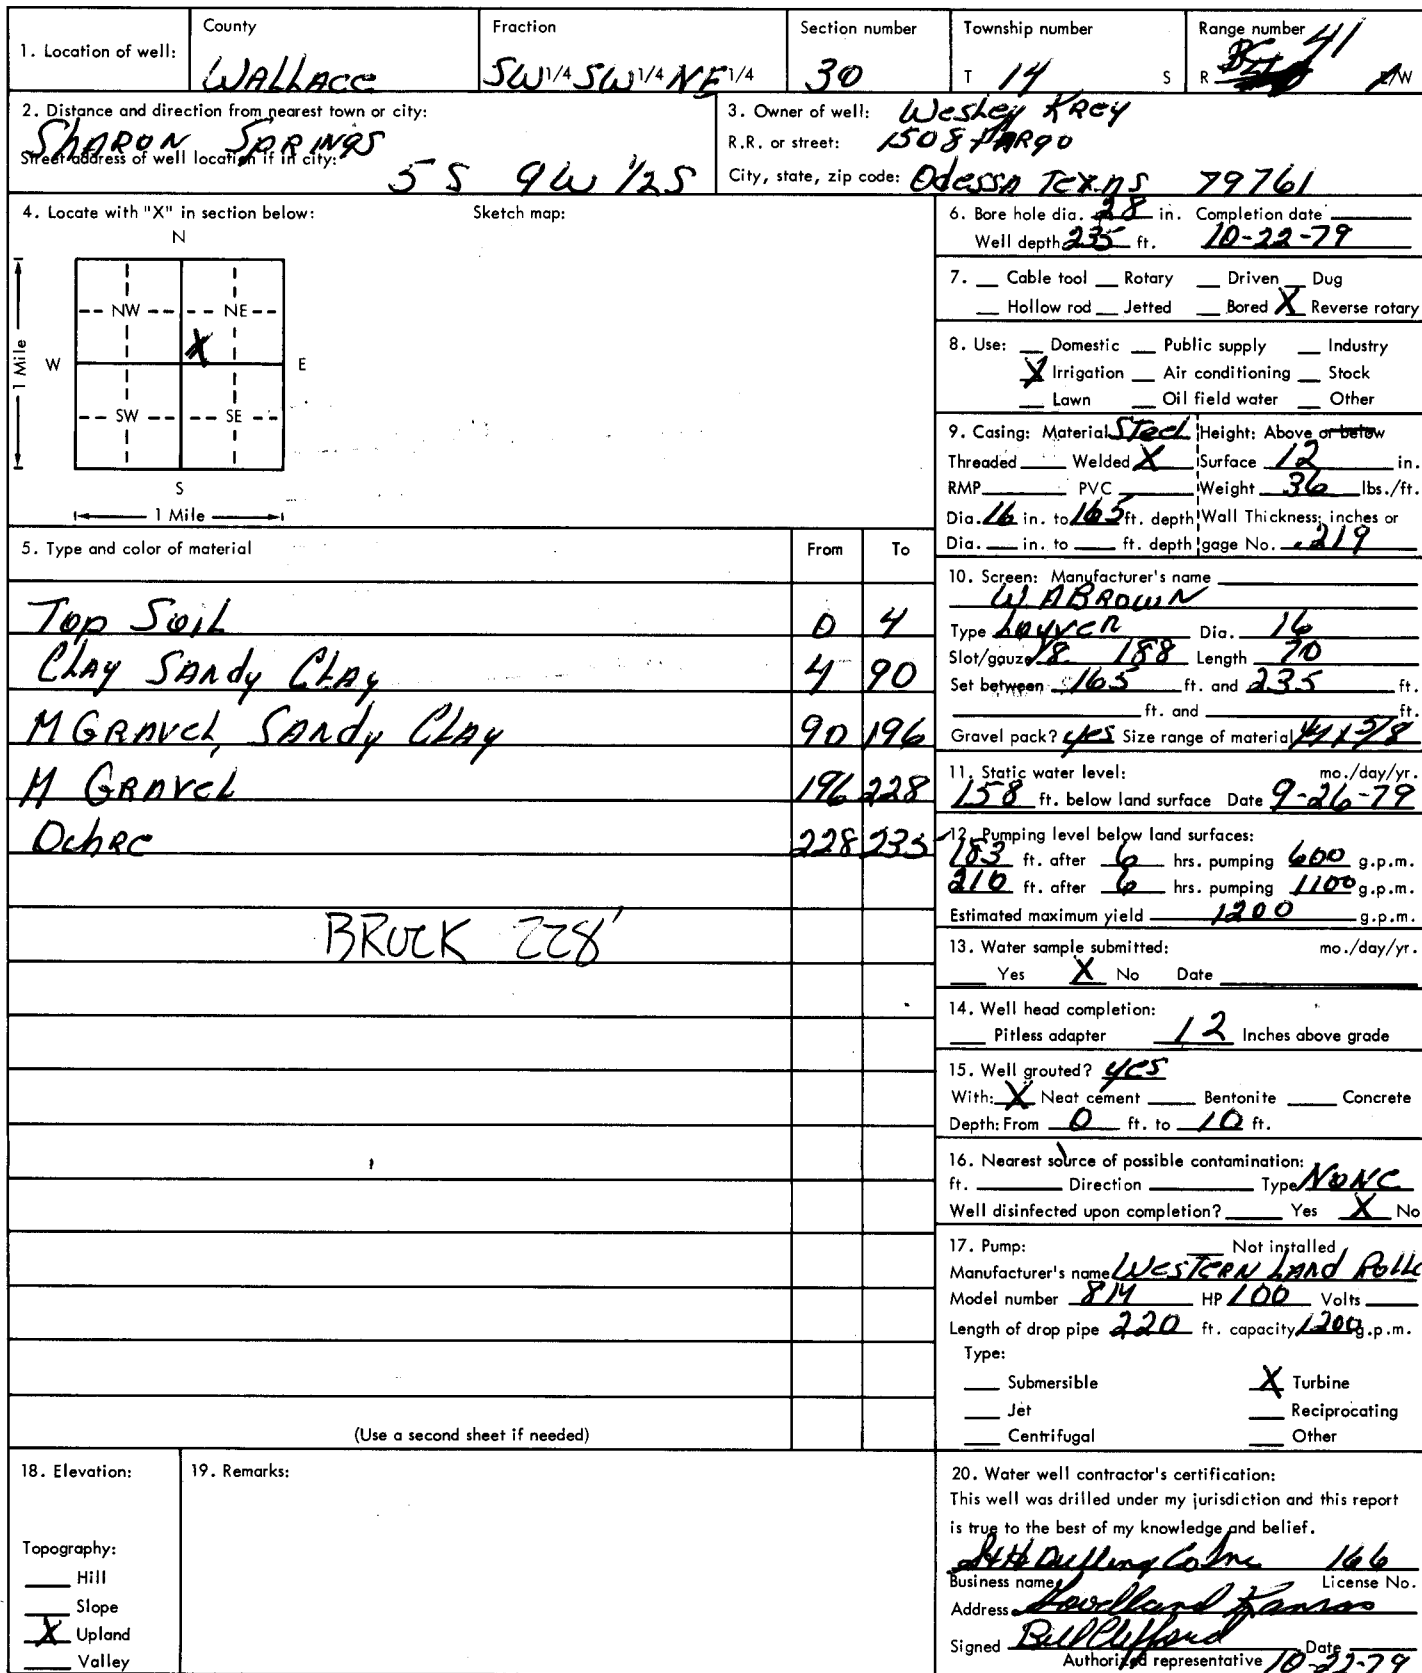 1. Location of well:
County
WALLACE
Fraction
SW 1/4 SW 1/4 NE 1/4
Section number
30
Township number
T 14 S
Range number
R 41 E/W
2. Distance and direction from nearest town or city:
Sharon Springs
Street address of well location if in city:
5 S 9W 1/2 S
3. Owner of well: Wesley Krey
R.R. or street: 1508 Fargo
City, state, zip code: Odessa Texas 79761
4. Locate with "X" in section below:
Sketch map:
N
NW NE
X
W E
SW SE
S
1 Mile
1 Mile
5. Type and color of material From To
Top Soil 0 4
Clay Sandy Clay 4 90
M Gravel, Sandy Clay 90 196
M Gravel 196 228
Ochre 228 235
BROCK 228'
(Use a second sheet if needed)
6. Bore hole dia. 28 in. Completion date
Well depth 235 ft. 10-22-79
7. Cable tool Rotary Driven Dug
Hollow rod Jetted Bored X Reverse rotary
8. Use: Domestic Public supply Industry
X Irrigation Air conditioning Stock
Lawn Oil field water Other
9. Casing: Material Steel Height: Above or below
Threaded Welded X Surface 12 in.
RMP PVC Weight 36 lbs./ft.
Dia. 16 in. to 165 ft. depth Wall Thickness: inches or
Dia. in. to ft. depth gage No. .219
10. Screen: Manufacturer's name
W A BROWN
Type Louver Dia. 16
Slot/gauze 188 Length 70
Set between 165 ft. and 235 ft.
ft. and ft.
Gravel pack? yes Size range of material 1/4 x 5/8
11. Static water level: mo./day/yr.
158 ft. below land surface Date 9-26-79
12. Pumping level below land surfaces:
183 ft. after 6 hrs. pumping 600 g.p.m.
210 ft. after 6 hrs. pumping 1100 g.p.m.
Estimated maximum yield 1200 g.p.m.
13. Water sample submitted: mo./day/yr.
Yes X No Date
14. Well head completion:
Pitless adapter 12 Inches above grade
15. Well grouted? yes
With: X Neat cement Bentonite Concrete
Depth: From 0 ft. to 10 ft.
16. Nearest source of possible contamination:
ft. Direction Type None
Well disinfected upon completion? Yes X No
17. Pump: Not installed
Manufacturer's name Western Land Rolle
Model number HP 100 Volts
Length of drop pipe 220 ft. capacity 1200 g.p.m.
Type:
Submersible X Turbine
Jet Reciprocating
Centrifugal Other
18. Elevation:
Topography:
Hill
Slope
X Upland
Valley
19. Remarks:
20. Water well contractor's certification:
This well was drilled under my jurisdiction and this report
is true to the best of my knowledge and belief.
Drilling Co Inc 166
Business name License No.
Address Kansas
Signed Bill Clifford Date
Authorized representative 10-22-79